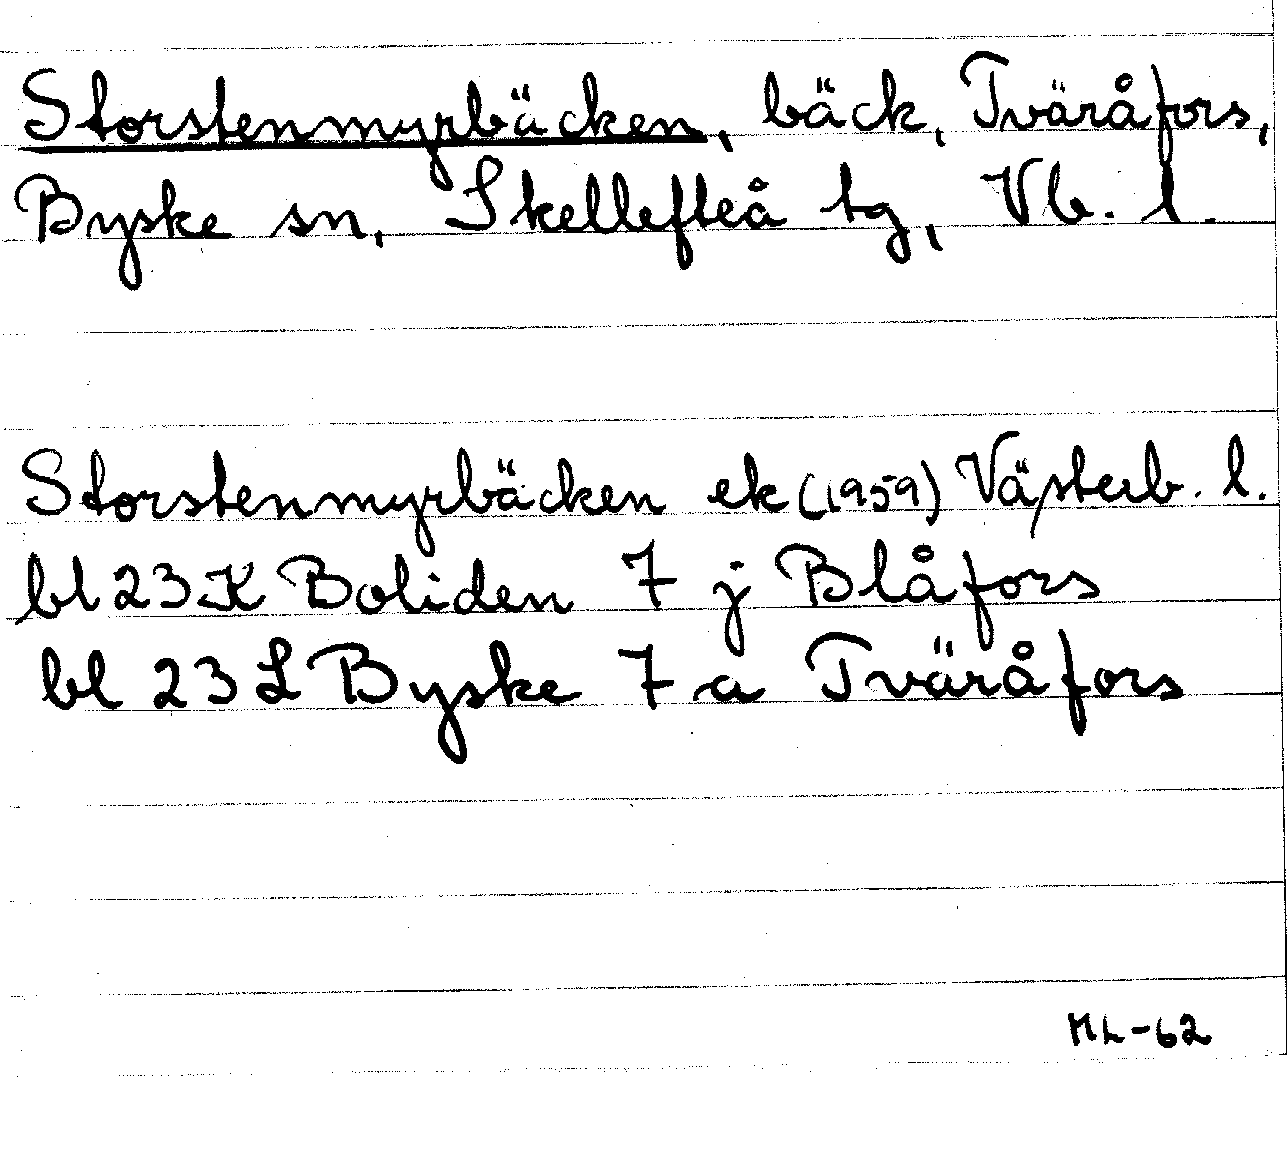 Storstenmyrbäcken, bäck, Tväråfors,
Byske sn, Skellefteå tg, Vb. l.
Storstenmyrbäcken ek (1959) Västerb. l.
bl 23 K Boliden 7 j Blåfors
bl 23 L Byske 7 a Tväråfors
ML-62